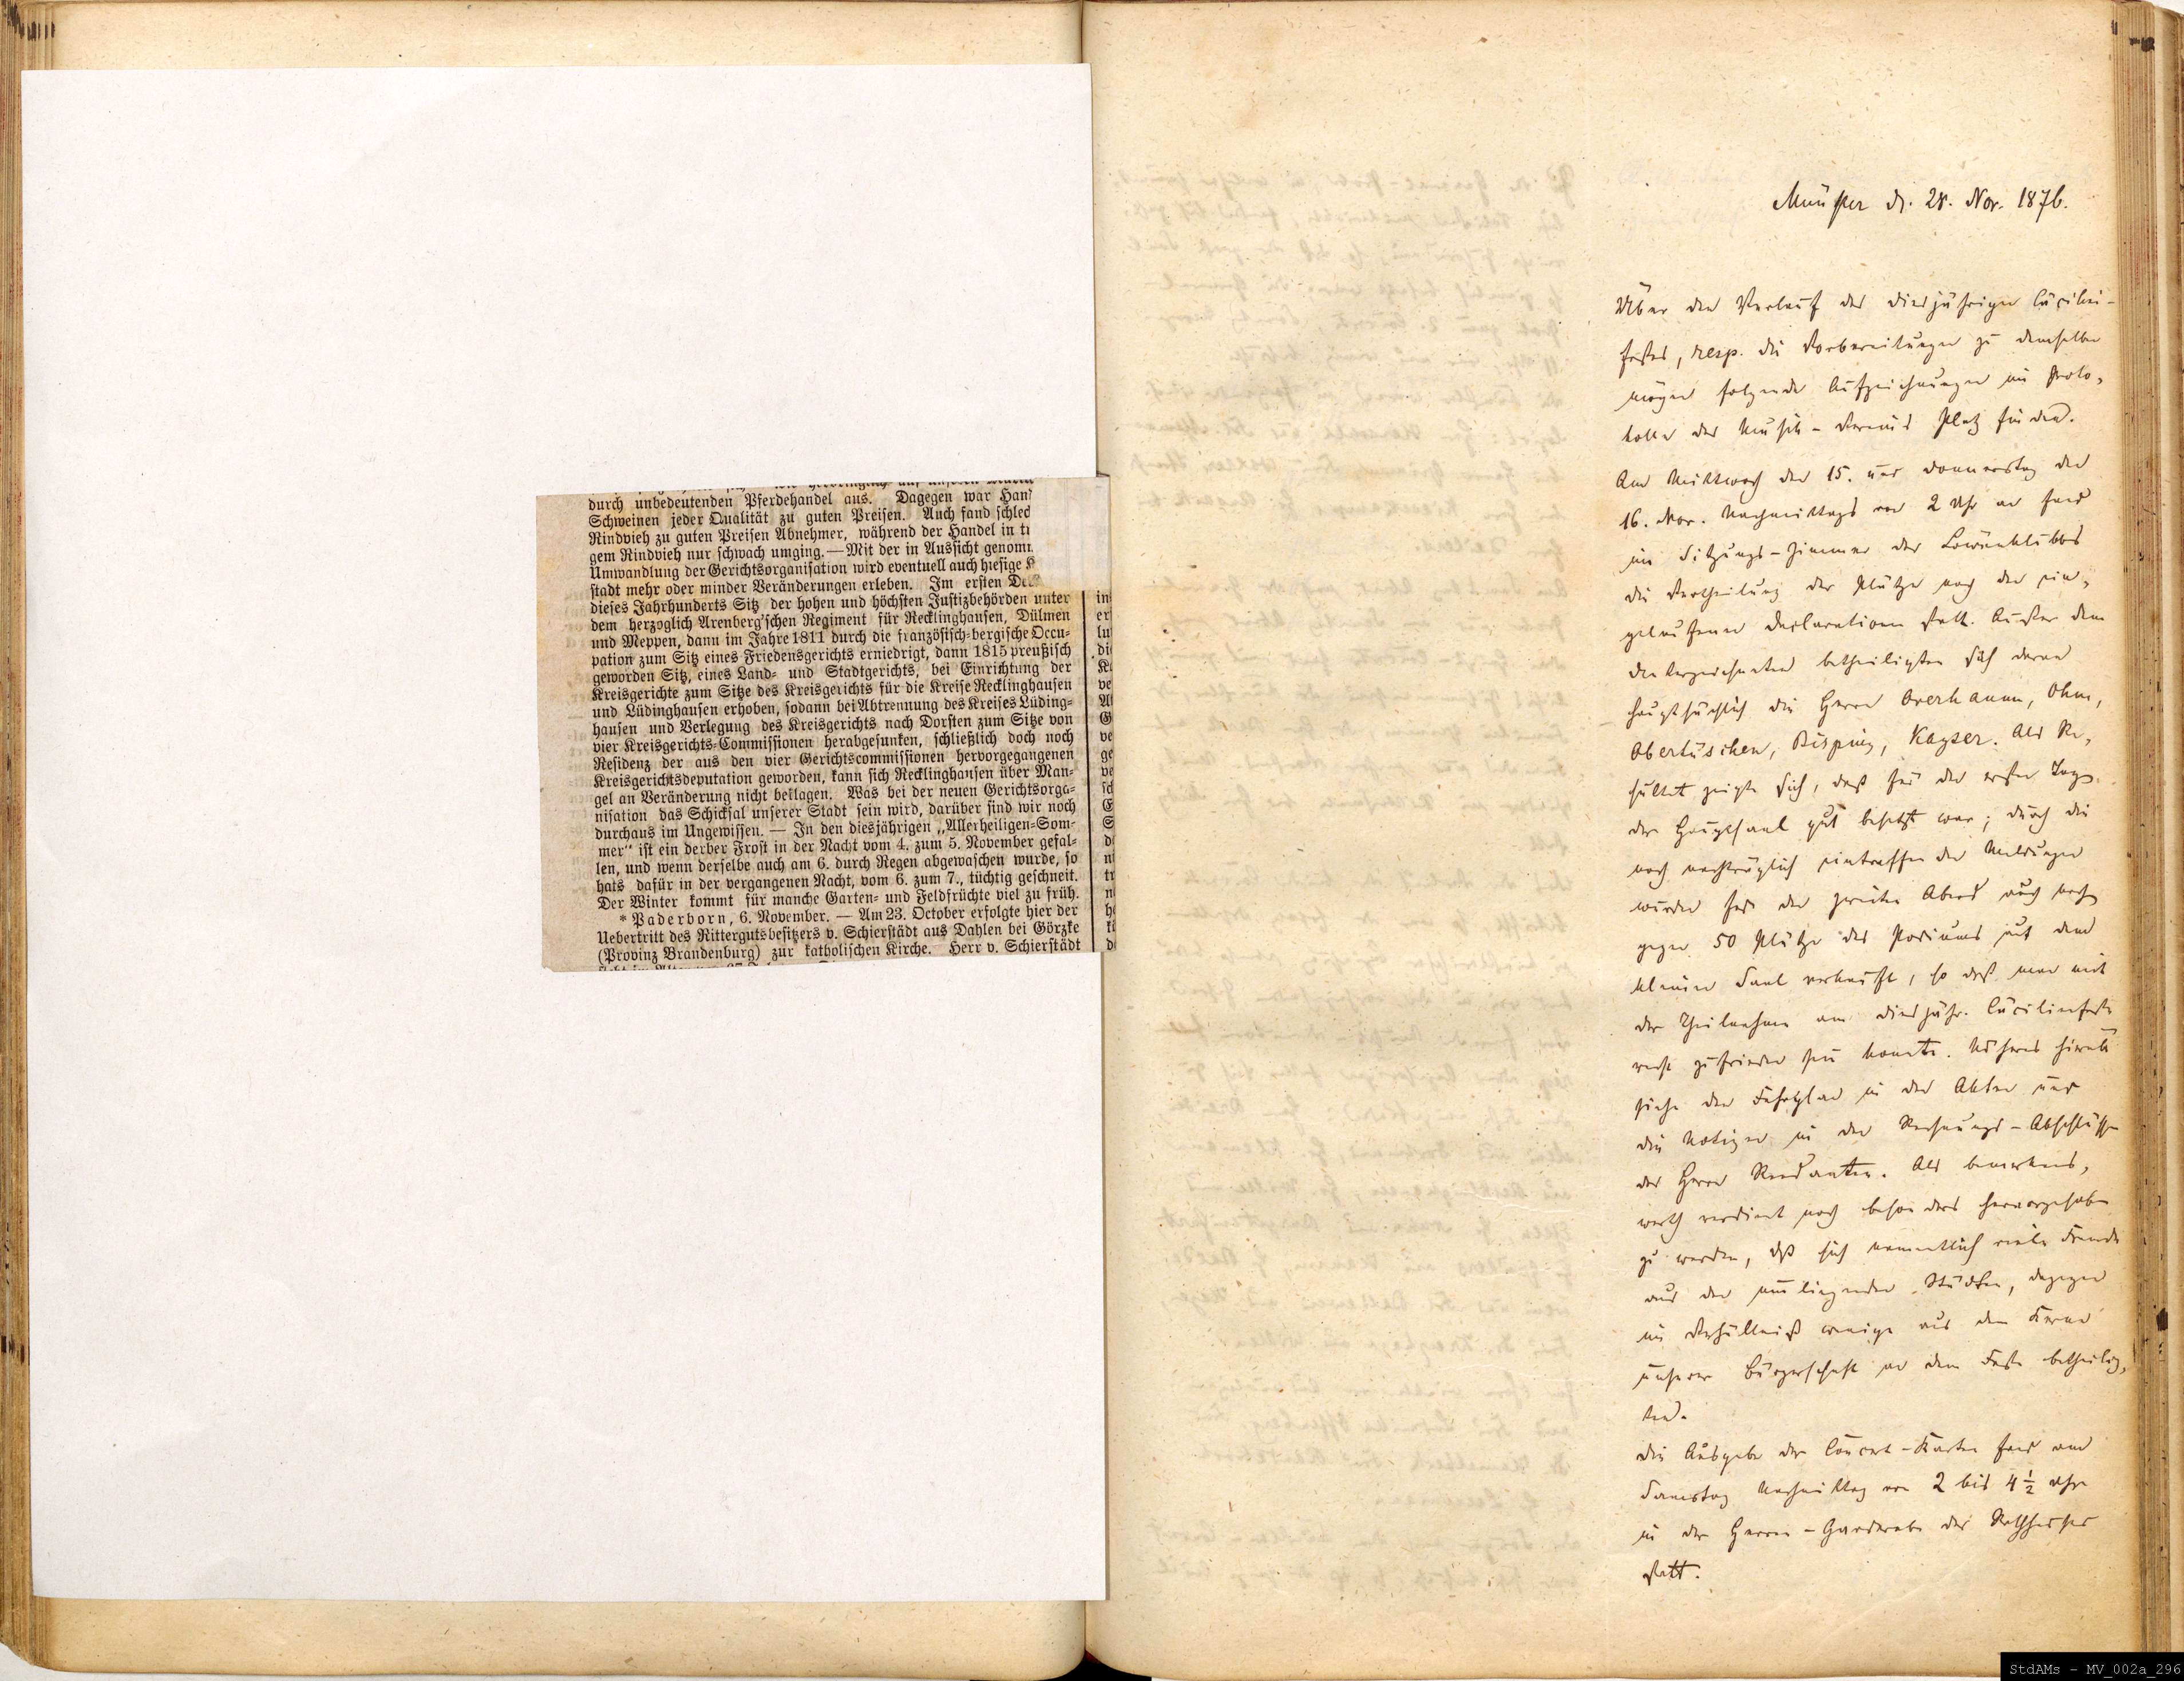 durch unbedeutenden Pferdehandel aus. Dagegen war Han
Schweinen jeder Qualität zu guten Preisen. Auch fand schlec
Rindvieh zu guten Preisen Abnehmer, während der Handel in tr
gem Rindvieh nur schwach umging. — Mit der in Aussicht genomm
Umwandlung der Gerichtsorganisation wird eventuell auch hiesige
stadt mehr oder minder Veränderungen erleben. Im ersten De
dieses Jahrhunderts Sitz der hohen und höchsten Justizbehörden unter
dem herzoglich Arenberg'schen Regiment für Recklinghausen, Dülmen
und Meppen, dann im Jahre 1811 durch die französisch-bergische Occu-
pation zum Sitz eines Friedensgerichts erniedrigt, dann 1815 preußisch
geworden Sitz, eines Land- und Stadtgerichts, bei Einrichtung der
Kreisgerichte zum Sitze des Kreisgerichts für die Kreise Recklinghausen
und Lüdinghausen erhoben, sodann bei Abtrennung des Kreises Lüding-
hausen und Verlegung des Kreisgerichts nach Dorsten zum Sitze von
vier Kreisgerichts-Commissionen herabgesunken, schließlich doch noch
Residenz der aus den vier Gerichtscommissionen hervorgegangenen
Kreisgerichtsdeputation geworden, kann sich Recklinghausen über Man-
gel an Veränderung nicht beklagen. Was bei der neuen Gerichtsorga-
nisation das Schicksal unserer Stadt sein wird, darüber sind wir noch
durchaus im Ungewissen. — In den diesjährigen „Allerheiligen-Som-
mer“ ist ein derber Frost in der Nacht vom 4. zum 5. November gefal-
len, und wenn derselbe auch am 6. durch Regen abgewaschen wurde, so
hats dafür in der vergangenen Nacht, vom 6. zum 7., tüchtig geschneit.
Der Winter kommt für manche Garten- und Feldfrüchte viel zu früh.
* Paderborn, 6. November. — Am 23. October erfolgte hier der
Uebertritt des Rittergutsbesitzers v. Schierstädt aus Dahlen bei Görzke
(Provinz Brandenburg) zur katholischen Kirche. Herr v. Schierstädt
Münster d. 28. Nov. 1876.
Über den Verlauf des diesjährigen Cäcilien-
festes, resp. die Vorbereitungen zu demselben
mögen folgende Aufzeichnungen im Proto-
kolle des Musik-Vereins Platz finden.
Am Mittwoch den 15. und Donnerstag den
16. Nov. Nachmittags von 2 Uhr an fand
im Sitzungs-Zimmer des Lowenklubbs
die Vertheilung der Plätze nach den ein-
gelaufenen Declarationen statt. Außer dem
Unterzeichneten betheiligten sich daran
hauptsächlich die Herren Overhamm, Ohm,
Obertüschen, Bisping, Kayser. Als Re-
sultat zeigte sich, daß für den ersten Tag
der Hauptsaal gut besetzt war; durch die
noch nachträglich eintreffenden Meldungen
wurden für den zweiten Abend auch noch
gegen 50 Plätze des Podiums auf dem
kleinen Saal verkauft, so daß man mit
der Theilnahme am diesjähr. Cäcilienfeste
recht zufrieden sein konnte. Näheres hierüb
siehe den Sitzplan in den Akten und
die Notizen in den Rechnungs-Abschlüssen
des Herrn Rendanten. Als bemerkens-
werth verdient noch besonders hervorgehoben
zu werden, daß sich namentlich viele Fremde
aus den umliegenden Städten, dagegen
im Verhältniß wenige aus dem Kerne
unserer Bürgerschaft an dem Feste betheilig-
ten.
Die Ausgabe der Concert-Karten fand am
Samstag Nachmittag von 2 bis 4 ½ Uhr
in der Herren-Garderobe des Rathhauses
statt.
StdAMs - MV_002a_296